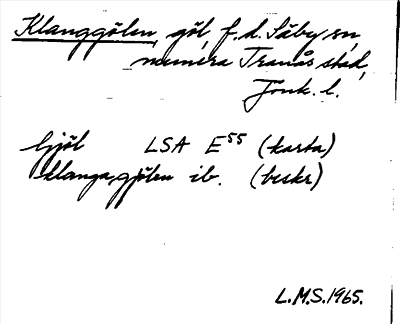 Klanggölen, göl, f.d. Säby sn,
numera Tranås stad,
Jönk. l.
hjöl LSA E55 (karta)
klanga,gjölen ib. (beskr)
L.M.S. 1965.